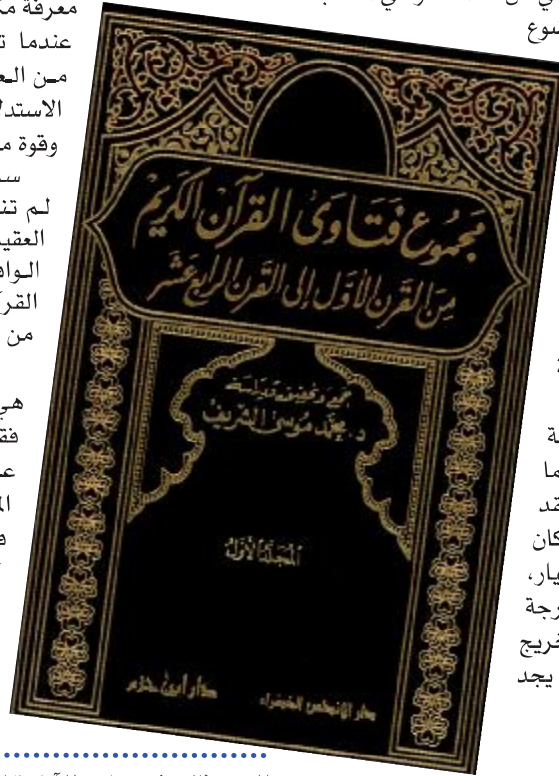 سوع
معرفة
عندما
من
الاستدل
وقوة
لم
العقيد
الواف
القرآ
من
هي
فق
مجموع فتاوى القرآن الكريم
من القرن الأول إلى القرن الرابع عشر
جمع وتحقيق ودراسة
د. محمد موسى الشريف
المجلد الأول
دار الأندلس الخضراء
دار ابن حزم
ة
ما
قد
كان
يار،
رجة
خريج
يجد